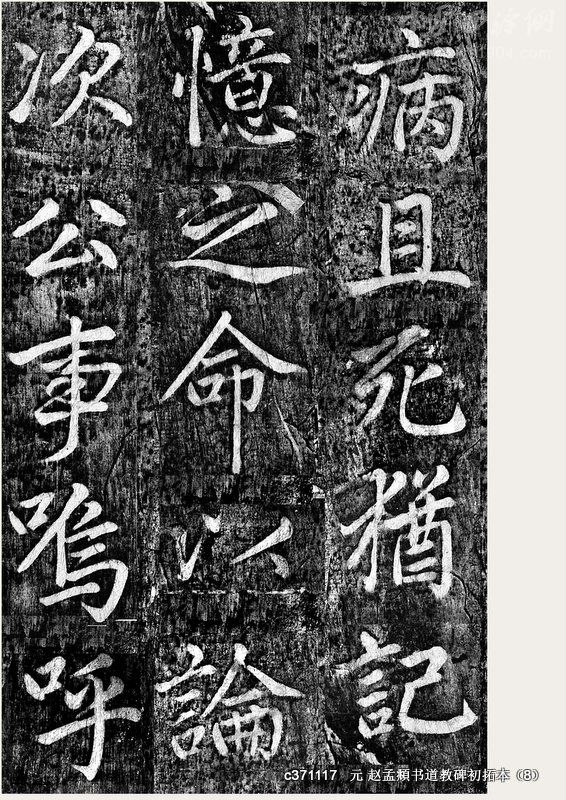 病且死猶記
憶之命以論
次公事嗚呼
c371117 元 赵孟頫书道教碑初拓本（8）